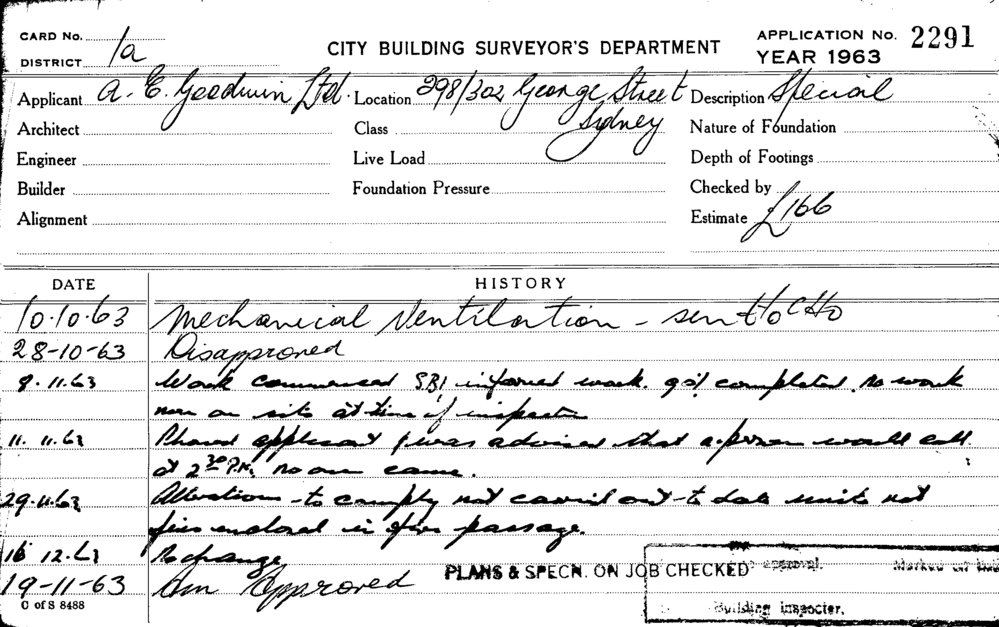 CARD No. 1a
DISTRICT
CITY BUILDING SURVEYOR'S DEPARTMENT
APPLICATION No. 2291
YEAR 1963
Applicant A. E. Goodwin Ltd. Location 298/302 George Street Sydney Description Special
Architect Class Nature of Foundation
Engineer Live Load Depth of Footings
Builder Foundation Pressure Checked by
Alignment Estimate £166
DATE HISTORY
10.10.63 Mechanical Ventilation - sent to CHO
28-10-63 Disapproved
8.11.63 Work commenced SBI informed work. 90% completed. No work
men on site at time of inspection
11.11.63 Phoned applicant & was advised that a person would call
at 2 30 P.M. no one came.
29.11.63 Alterations - to comply not carried out - to date units not
fire enclosed in fire passage.
16 12.63 No change
19-11-63 Am Approved
PLANS & SPECN. ON JOB CHECKED approval.
C of S 8488 Building Inspector.